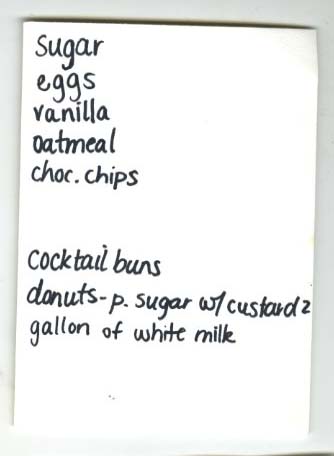 sugar
eggs
vanilla
oatmeal
choc. chips
cocktail buns
donuts - p. sugar w/ custard 2
gallon of white milk